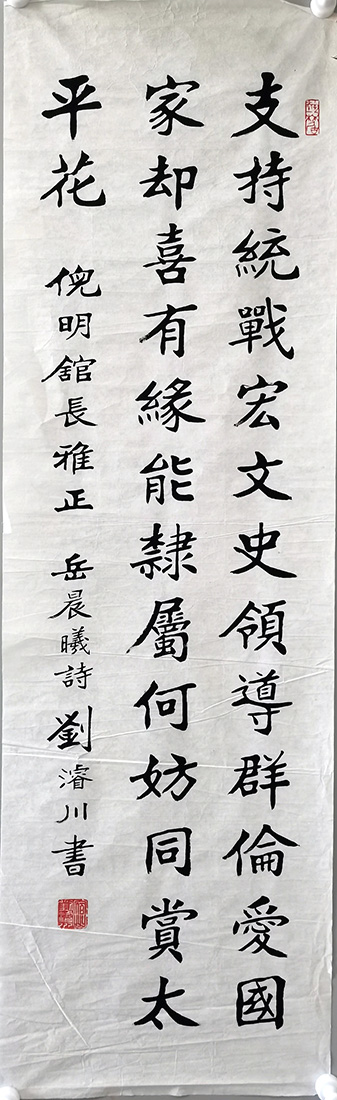 支持統戰宏文史領導群倫愛國
家却喜有緣能隸屬何妨同賞太
平花
倪明舘長雅正
岳晨曦詩
劉濬川書